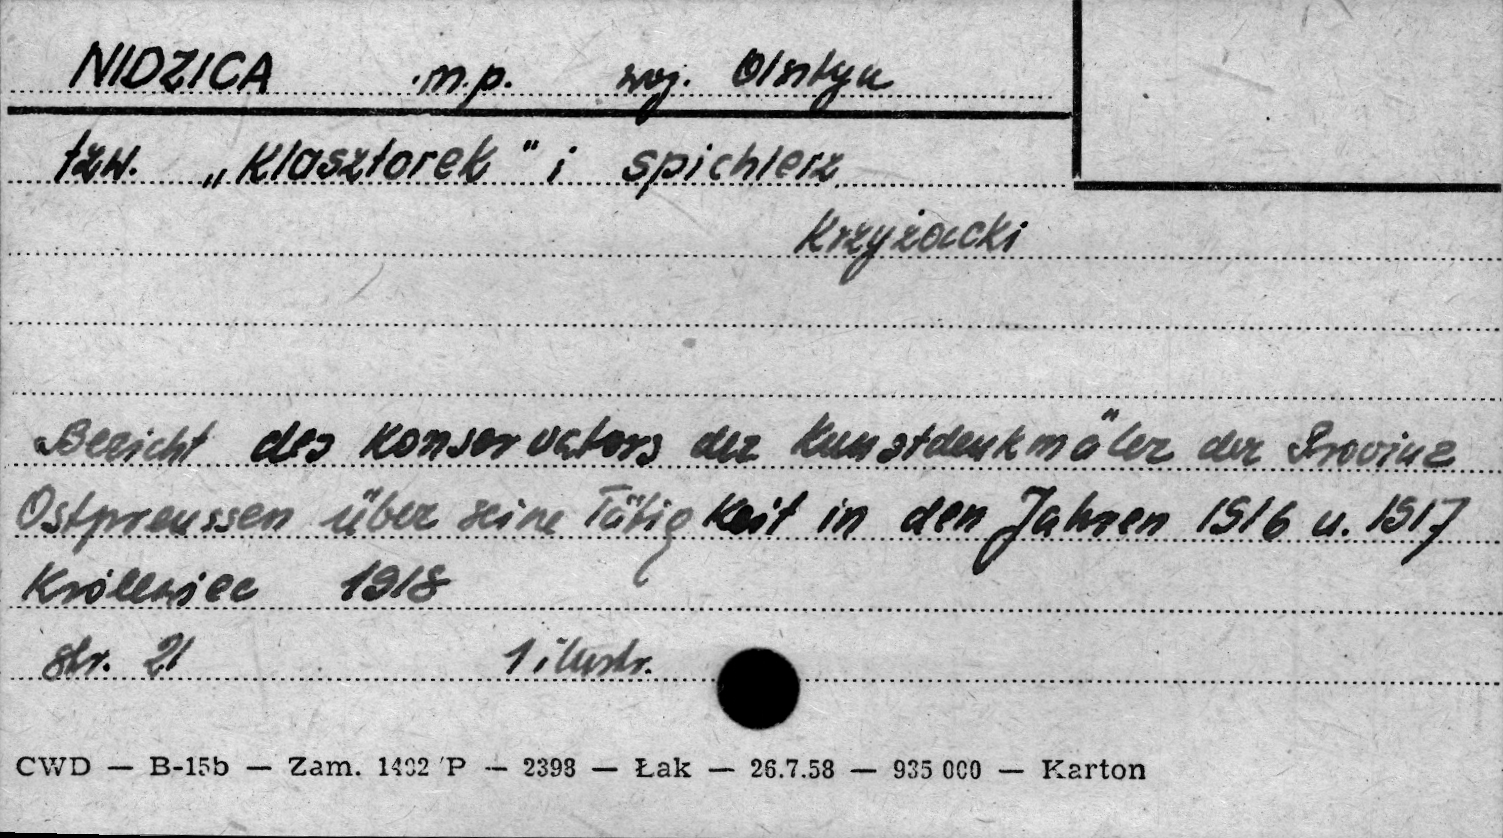 NIDZICA m.p. woj. Olsztyn
tzw. „Klasztorek" i spichlerz
Krzyżacki
Bericht des Konservators der Kunstdenkmäler der Provinz
Ostpreussen über seine Tätigkeit in den Jahren 1916 u. 1917
Królewiec 1918
str. 21 1 ilustr.
CWD — B-15b — Zam. 1402/P — 2398 — Łak — 26.7.58 — 935 000 — Karton